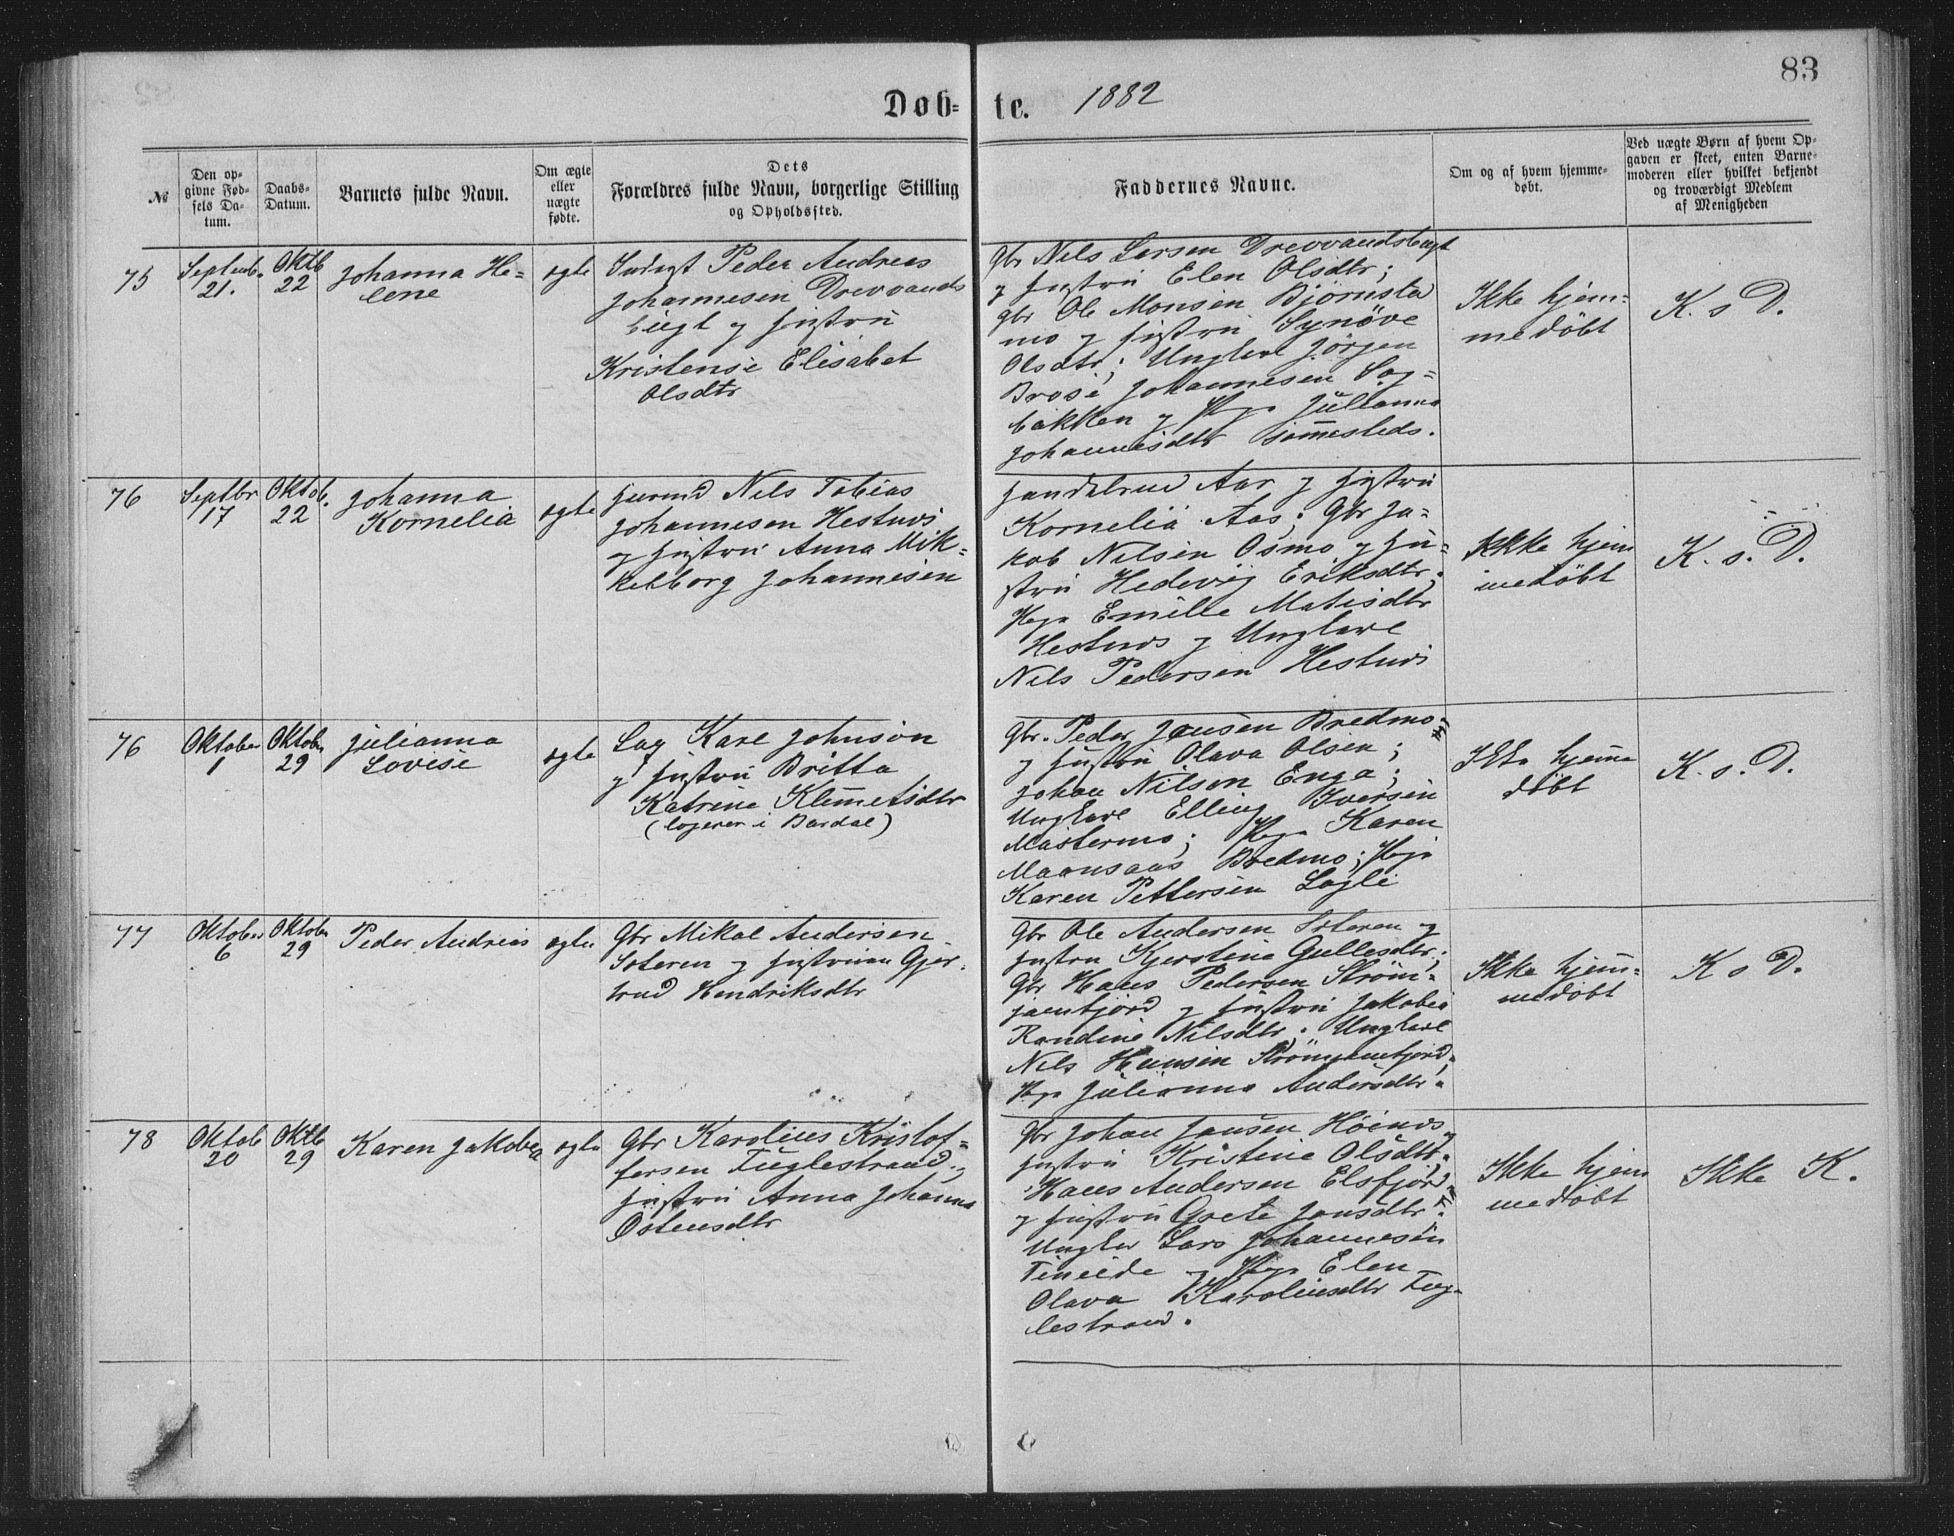 83
Døb= te. 1882
№
Den op-
givne Fød-
sels Da-
tum.
Daabs-
Datum.
Barnets fulde Navn.
Om ægte
eller
uægte
fødte.
Dets
Forældres fulde Navn, borgerlige Stilling
og Opholdssted.
Faddernes Navne.
Om og af hvem hjemme-
døbt.
Ved uægte Børn af hvem Op-
gaven er skeet, enten Barne-
moderen eller hvilket bekjendt
og troværdigt Medlem
af Menigheden
75
Septemb.
21.
Oktb
22
Johanna He-
lene
ægte
Indst Peder Andreas
Johannesen Drevvands
bugt og Hustru
Kristense Elisabet
Olsdtr
Gbr Nils Larsen Drevvandsbugt
og Hustru Elen Olsdtr;
gbr Ole Monsen Björnsta
mo og Hustru Synöve
Olsdtr; Ungkarl Jörgen
Brose Johannesen Sag-
bakken og Pige Julianna
Johannesdtr sammesteds.
Ikke hjem-
medöbt
K. s D.
76
Septbr
17
Oktob.
22
Johanna
Kornelia
ægte
Huusmd Nils Tobias
Johannesen Hestnes
og Hustru Anna Mik-
kelborg Johannesen
Handelsmd Aas og Hustru
Kornelia Aas; Gbr Ja-
kob Nilsen Osmo og Hu-
stru Hedevig Eriksdtr;
Pige Emilie Matisdtr
Hestnes og Ungkarl
Nils Pedersen Hestnes
Ikke hjem
medöbt
K. s. D.
76
Oktober
1
Oktober
29
Julianna
Lovise
ægte
Lag Karl Johnson
og Hustru Britta
Katrine Klemetsdtr
(logerer i Bardal)
Gbr. Peder Jansen Bredmo
og Hustru Olava Olsen;
Johan Nilsen Enga;
Ungkarl Elling Iversen
Mastermo; Pige Karen
Maansaas Bredmo; Pige
Karen Pettersen Lagli
Ikke hjemme
döbt
K. s. D.
77
Oktober
6
Oktober
29
Peder Andreas
ægte
Gbr Mikal Andersen
Sæteren og Hustruen Gjer-
trud Hendriksdtr
Gbr Ole Andersen Sæteren og
Hustru Kjerstina Gullesdtr;
Gbr Hans Pedersen Ström-
jaentjörd og Hustru Jakobia
Randine Nilsdtr; Ungkarl
Nils Hansen
Pige Julianna Andersdtr.
Ikke hjem-
medöbt
K s D.
78
Oktob
20
Oktb
29
Karen Jakobea
ægte
Gbr Karolius Kristof-
fersen Fuglestrand og
Hustru Anna Johanna
Östensdtr
Gbr Johan Jansen Höines og
Hustru Kristine Olsdtr.
Hans Andersen Elsfjord
og Hustru Grete Jonsdtr;
Ungkar Lars Johannesen
og Pige Elen
Olava Karoliusdtr Fug-
lestrand.
Ikke hjem
medöbt
Ikke K.